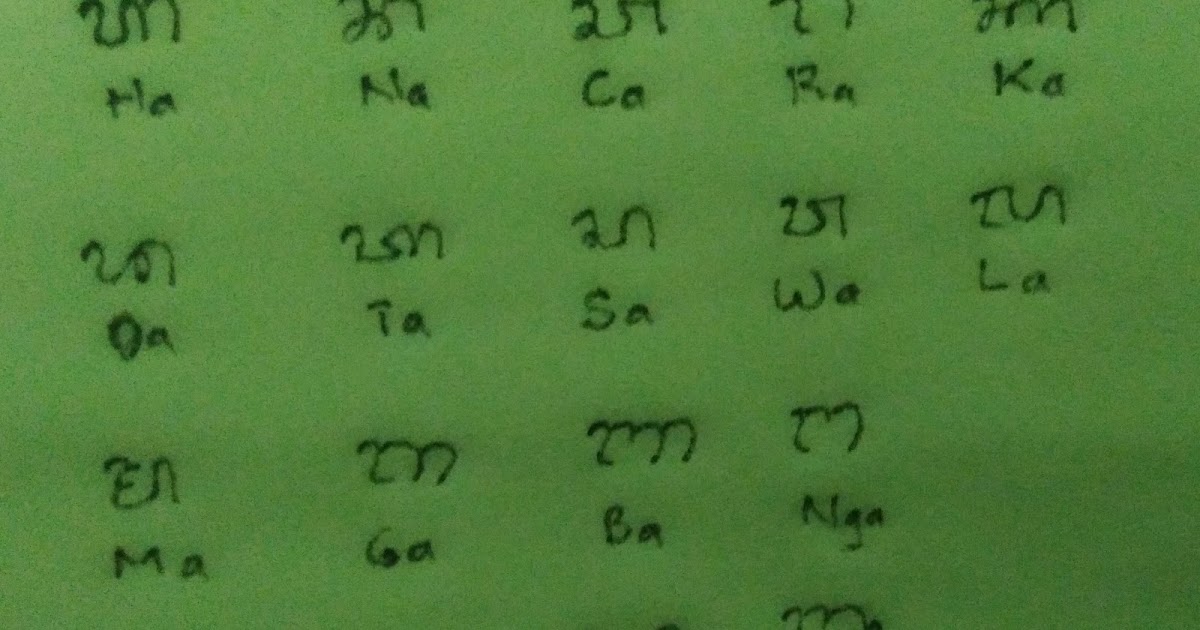 ᬳ ᬦ ᬘ ᬭ ᬓ
Ha Na Ca Ra Ka
ᬤ ᬢ ᬲ ᬯ ᬮ
Da Ta Sa Wa La
ᬫ ᬕ ᬩ ᬗ
Ma Ga Ba Nga